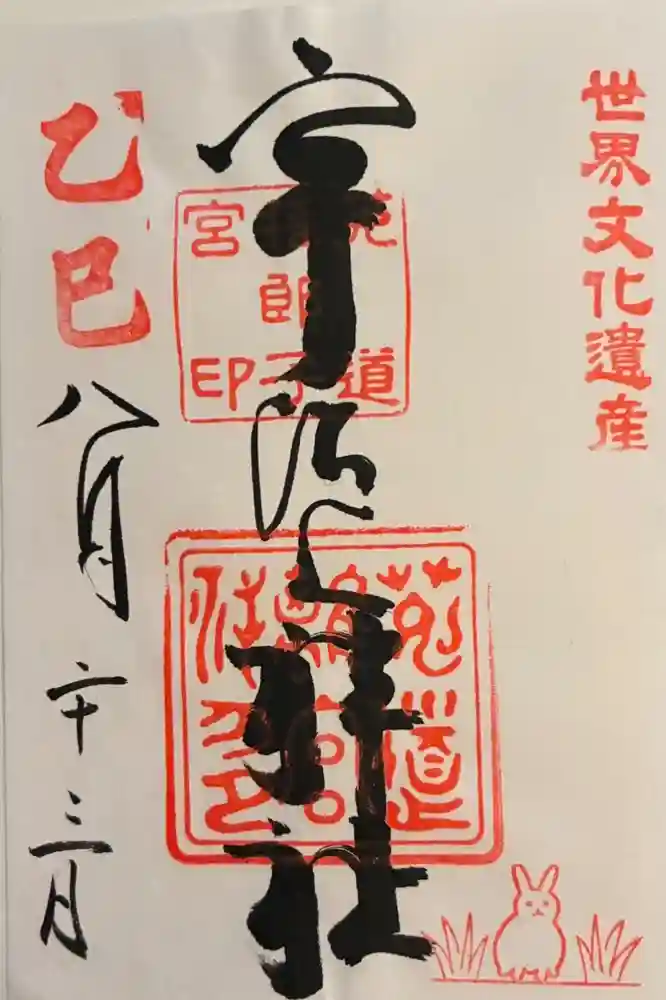 世界文化遺産
宇治上神社
菟道
郎子
宮印
菟道
乙巳
八月二十三日